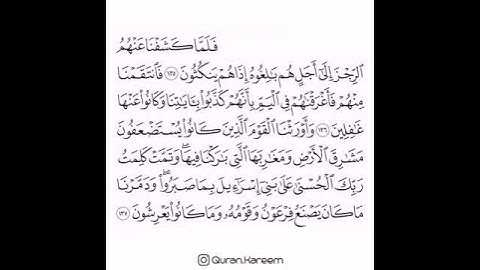 فَلَمَّا كَشَفْنَا عَنْهُمُ
ٱلرِّجْزَ إِلَىٰٓ أَجَلٍ هُم بَٰلِغُوهُ إِذَا هُمْ يَنكُثُونَ ١٣٥ فَٱنتَقَمْنَا
مِنْهُمْ فَأَغْرَقْنَٰهُمْ فِى ٱلْيَمِّ بِأَنَّهُمْ كَذَّبُوا۟ بِـَٔايَٰتِنَا وَكَانُوا۟ عَنْهَا
غَٰفِلِينَ ١٣٦ وَأَوْرَثْنَا ٱلْقَوْمَ ٱلَّذِينَ كَانُوا۟ يُسْتَضْعَفُونَ
مَشَٰرِقَ ٱلْأَرْضِ وَمَغَٰرِبَهَا ٱلَّتِى بَٰرَكْنَا فِيهَا ۖ وَتَمَّتْ كَلِمَتُ
رَبِّكَ ٱلْحُسْنَىٰ عَلَىٰ بَنِىٓ إِسْرَٰٓءِيلَ بِمَا صَبَرُوا۟ ۖ وَدَمَّرْنَا
مَا كَانَ يَصْنَعُ فِرْعَوْنُ وَقَوْمُهُۥ وَمَا كَانُوا۟ يَعْرِشُونَ ١٣٧
Quran.Kareem